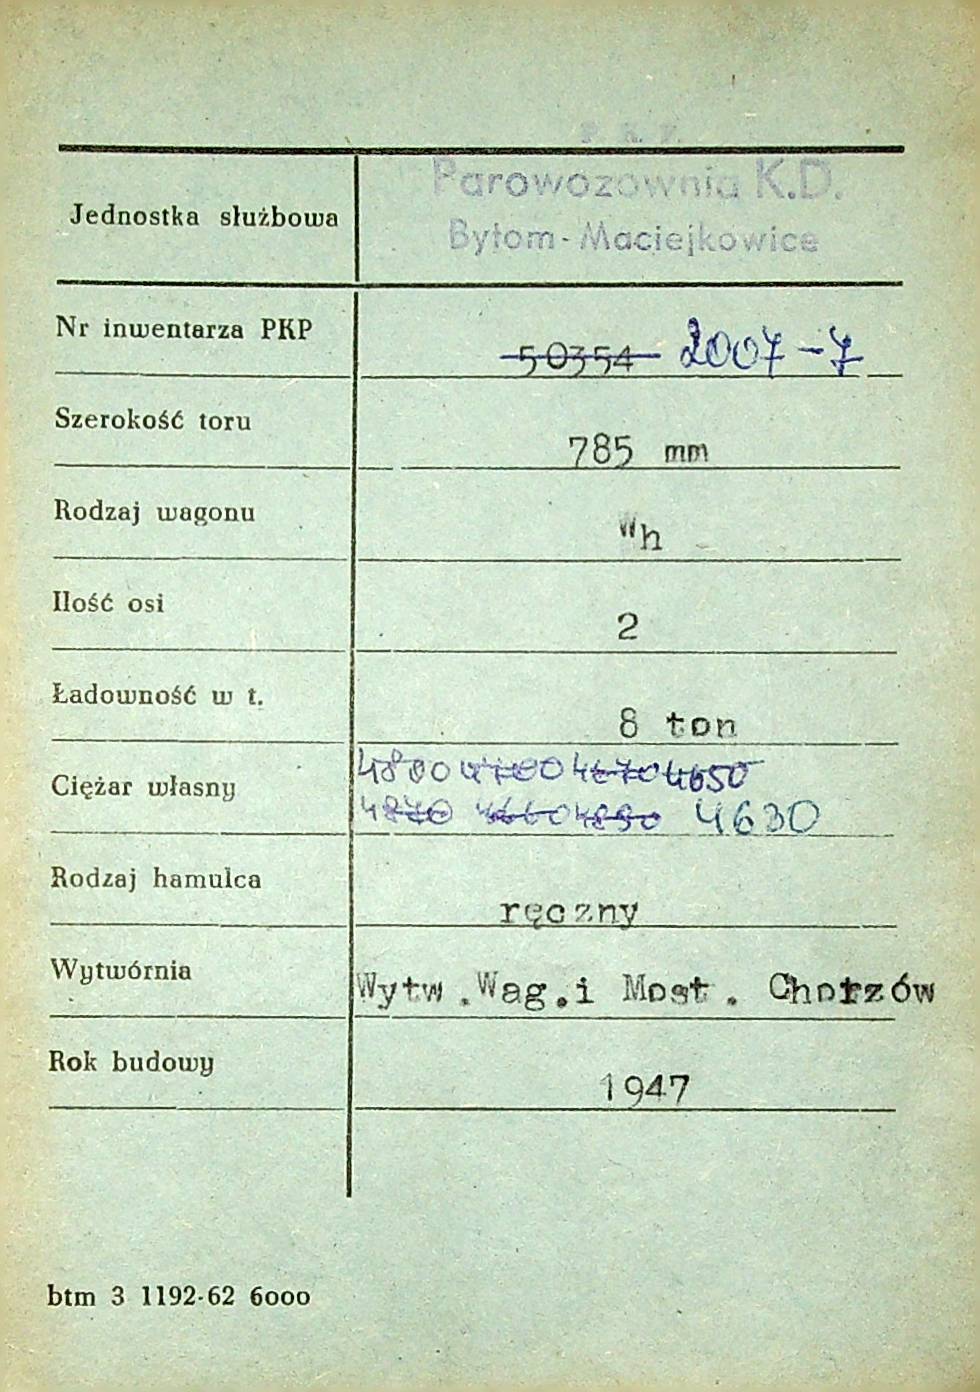 P. K. P.
Parowozownia K.D.
Jednostka służbowa
Bytom-Maciejkowice
Nr inwentarza PKP
50354 2007-7
Szerokość toru
785 mm
Rodzaj wagonu
Wh
Ilość osi
2
Ładowność w t.
8 ton
4800 4700 4670 4650
Ciężar własny
4840 4660 4690 4630
Rodzaj hamulca
ręczny
Wytwórnia
Wytw.Wag.i Most. Chorzów
Rok budowy
1947
btm 3 1192-62 6000